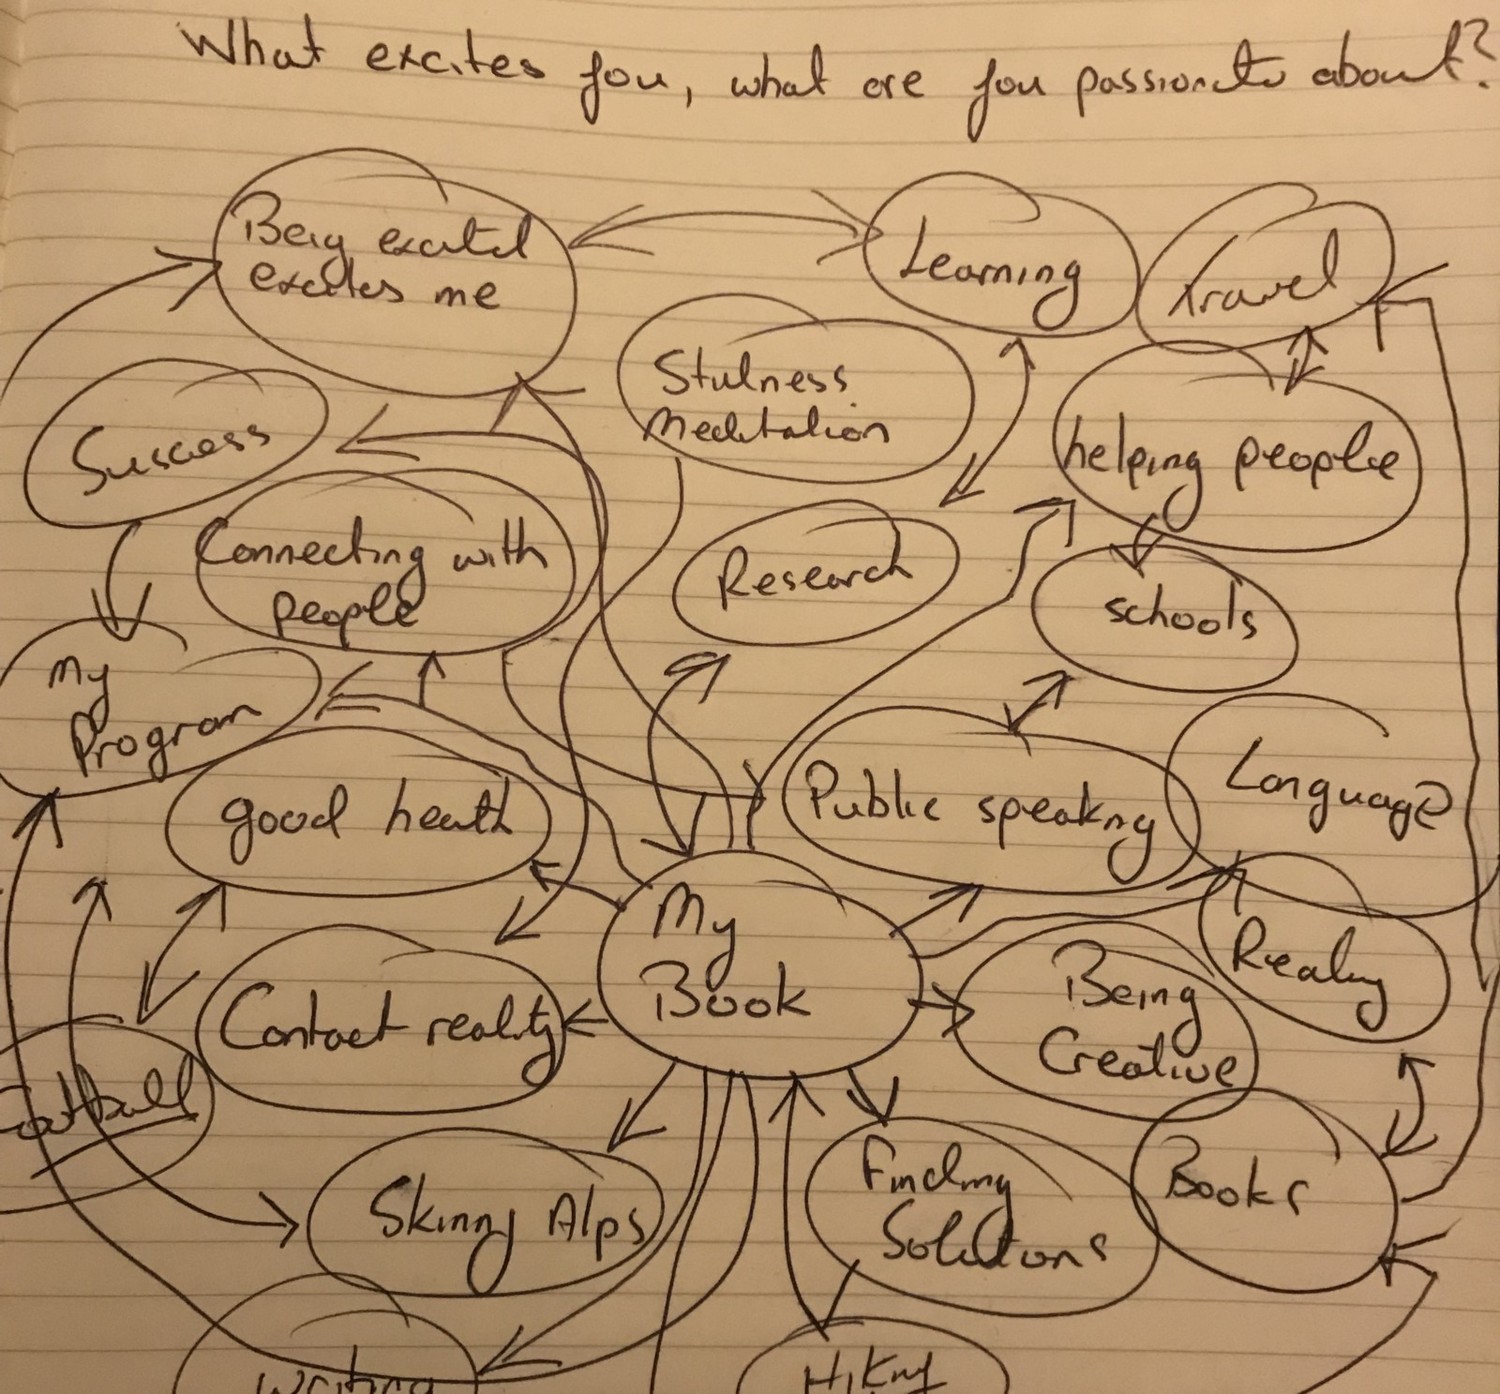 What excites you, what are you passionate about?
Being excited
excites me
Learning
Travel
Stillness
Meditation
Success
helping people
Connecting with
people
Research
schools
My
Program
Language
good health
Public speaking
My
Book
Reading
Contact reality
Being
Creative
Football
Finding
Solutions
Books
Skinny Alps
Writing
Hiking